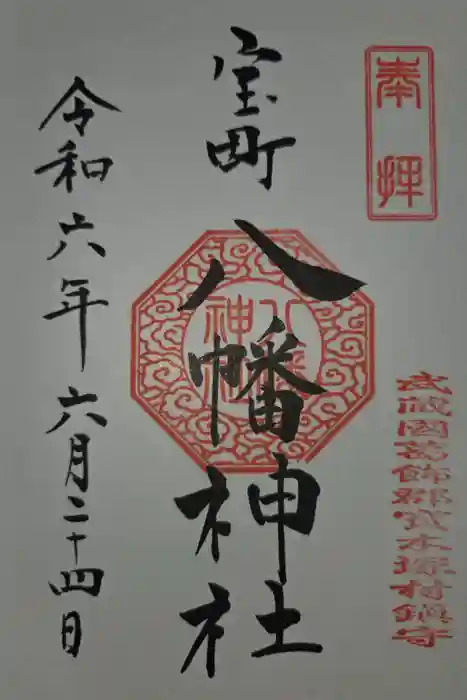 奉拝
武蔵國葛飾郡宝木塚村鎮守
宝町
八幡神社
令和六年六月二十四日